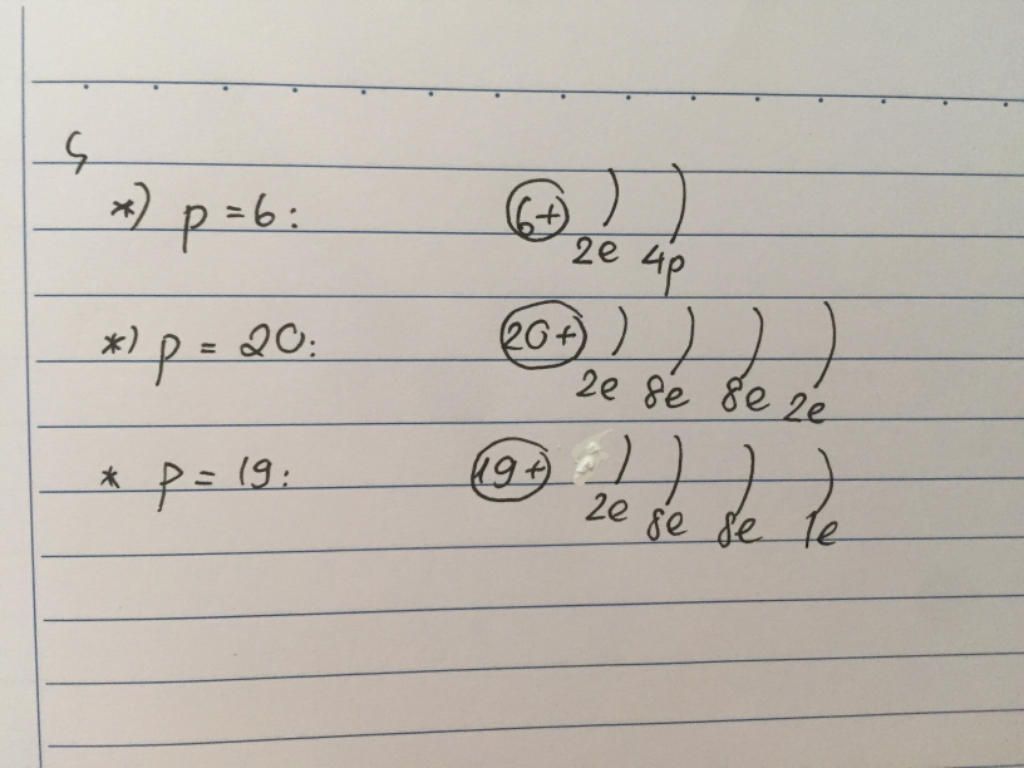 5
*) p = 6: 6+ ) ) 2e 4p
*) p = 20: 20+ ) ) ) ) 2e 8e 8e 2e
* p = 19: 19+ ) ) ) ) 2e 8e 8e 1e